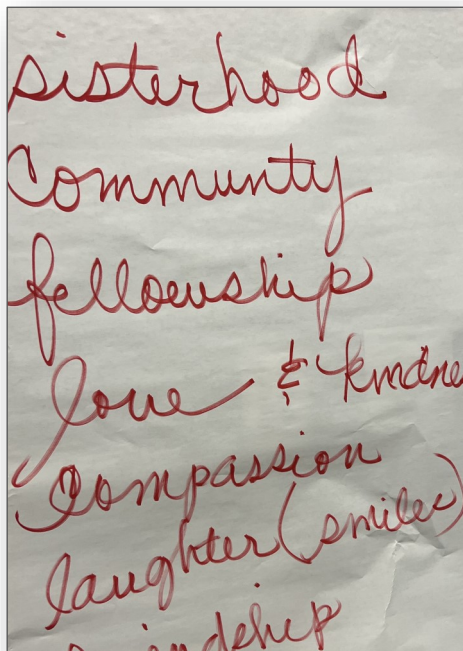 sisterhood
Communty
fellowship
love & kindne
Compassion
laughter (smiles)
iendship